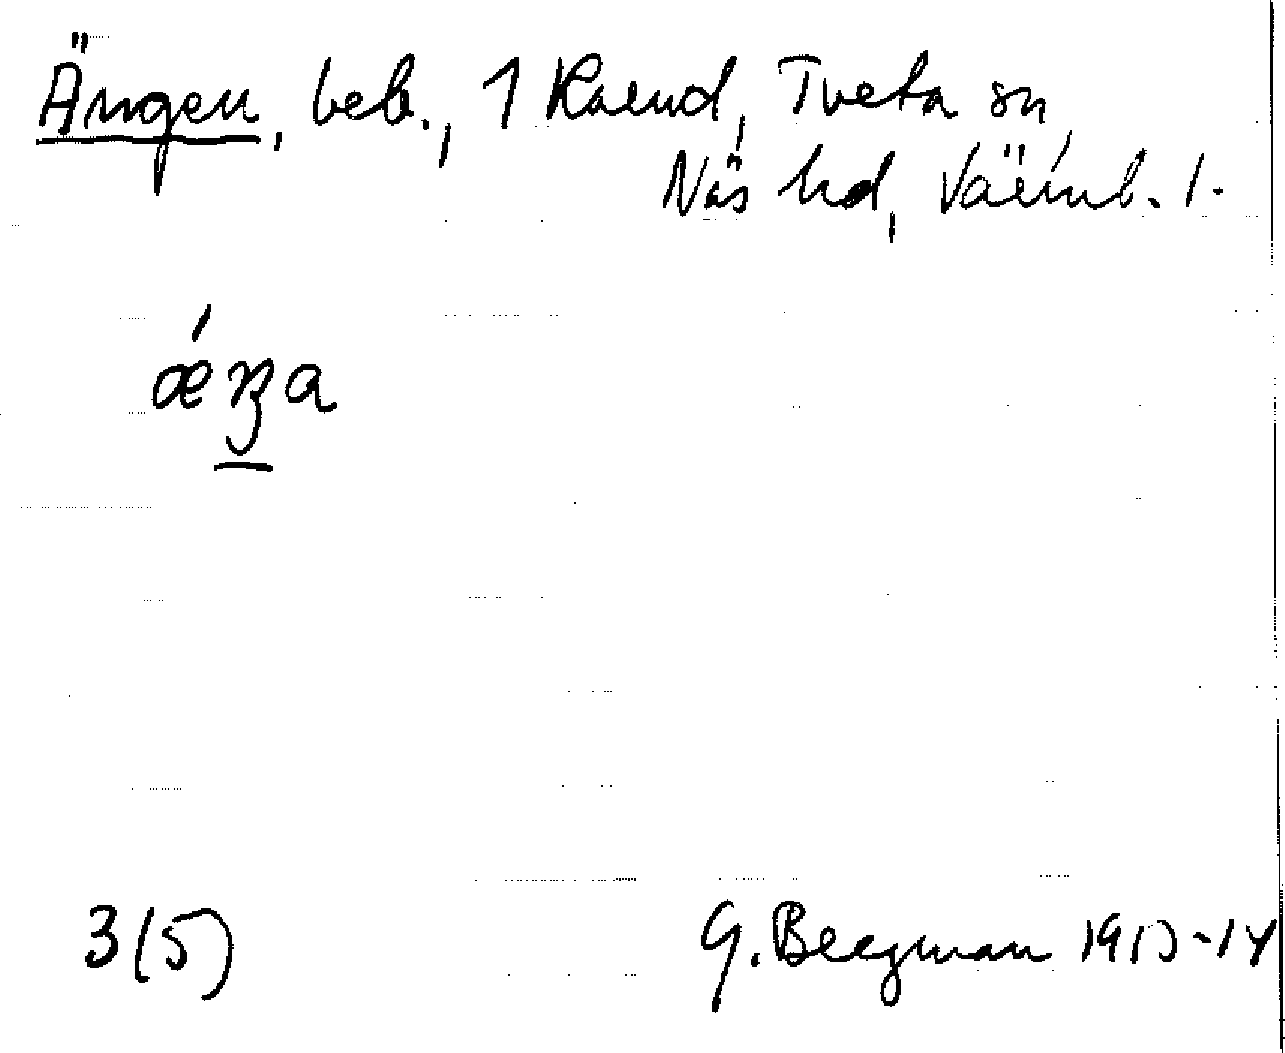 Ängen, beb., 1 Raend, Tveta sn,
Näs hd, Värml. l.
ǽŋa
3(5)
G. Bergman 1913-14